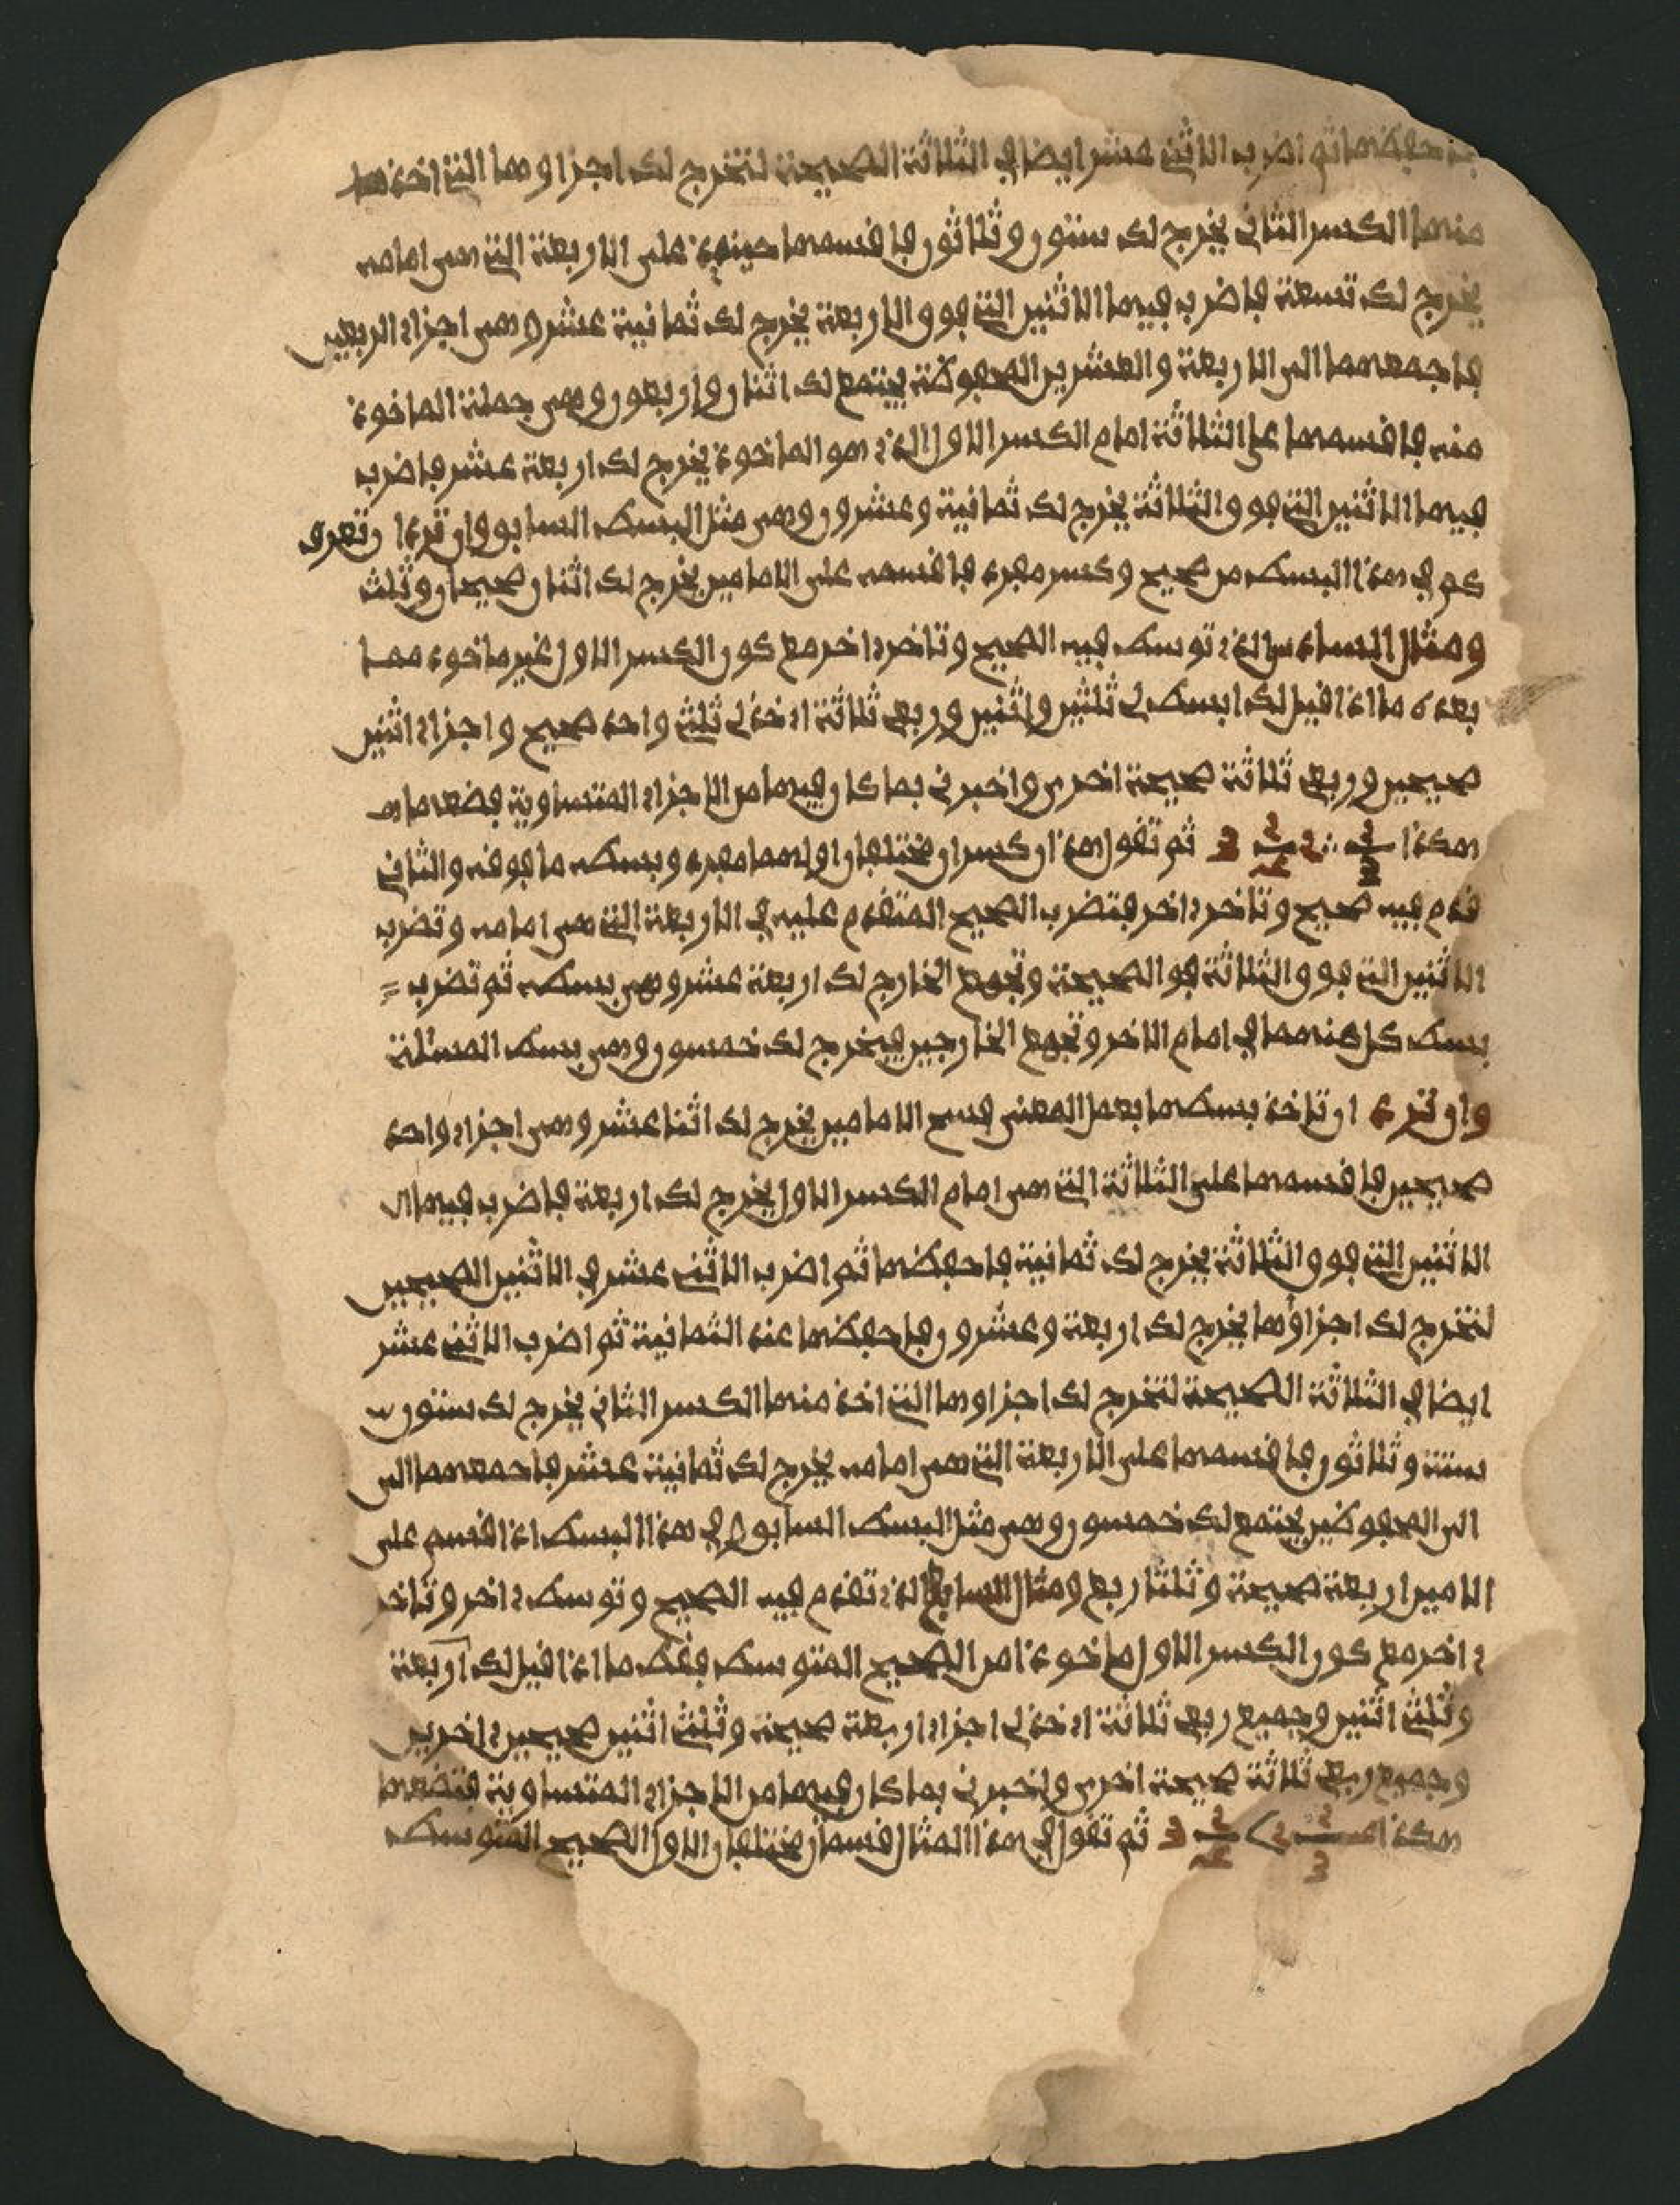 فاحفظها ثم اضرب الاثني عشر ايضا في الثلاثة الصحيحة لتخرج لك اجزاوها التي اخذ
منها الكسر الثاني يخرج لك ستة وثلاثون فاقسمها حينئذ على الاربعة التي هي امامه
يخرج لك تسعة فاضرب فيها الاثنين التي فوق الاربعة يخرج لك ثمانية عشر وهي اجزاء الربعين
فاجمعها الى الاربعة والعشرين المحفوظة يجتمع لك اثنان واربعون وهي جملة الماخوذ
منه فاقسمها على الثلاثة امام الكسر الاول الذي هو الماخوذ يخرج لك اربعة عشر فاضرب
فيها الاثنين التي فوق الثلاثة يخرج لك ثمانية وعشرون وهي مثل البسط السابق وان ترد ان تعرف
كم في هذا البسط من صحيح وكسر مفرد فاقسمه على الامامين يخرج لك اثنان صحيحان وثلث
ومثال السادس الذي توسط فيه الصحيح وتاخر اخر مع كون الكسر الاول غير ماخوذ مما
بعده ما اذا قيل لك ابسط لي ثلثين واثنين وربعي ثلاثة اي خذ لي ثلثي واحد صحيح واجزاء اثنين
صحيحين وربعي ثلاثة صحيحة اخرى واخبرني بما كان فيها من الاجزاء المتساوية فضعها
هكذا 2/3 2 2/4 3 ثم تقول هذان كسران مختلفان اولهما مفرد وبسطه ما فوقه والثاني
قدم فيه صحيح وتاخر اخر فتضرب الصحيح المتقدم عليه في الاربعة التي هي امامه وتضرب
الاثنين التي فوق الثلاثة فوق الصحيحة وتجمع الخارج لك اربعة عشر وهي بسطه ثم تضرب
بسط كل منهما في امام الاخر وتجمع الخارجين فيخرج لك خمسون وهي بسط المسئلة
وان ترد ان تاخذ بسطها بعمل المعنى فسطح الامامين يخرج لك اثنا عشر وهي اجزاء واحد
صحيح فاقسمها على الثلاثة التي هي امام الكسر الاول يخرج لك اربعة فاضرب فيها
الاثنين التي فوق الثلاثة يخرج لك ثمانية فاحفظها ثم اضرب الاثني عشر في الاثنين الصحيحين
لتخرج لك اجزاؤها يخرج لك اربعة وعشرون فاحفظها عند الثمانية ثم اضرب الاثني عشر
ايضا في الثلاثة الصحيحة لتخرج لك اجزاوها التي اخذ منها الكسر الثاني يخرج لك ستون
ستة وثلاثون فاقسمها على الاربعة التي هي امامه يخرج لك ثمانية عشر فاجمعها الى
الى المحفوظين يجتمع لك خمسون وهي مثل البسط السابق وفي هذا البسط اذا اقسم على
الامين اربعة صحيحة وثلثا ربع ومثال السابع الذي تقدم فيه الصحيح وتوسط اخر وتاخر
اخر مع كون الكسر الاول ماخوذا من الصحيح المتوسط فقط ما اذا قيل لك اربعة
وثلثي اثنين وجميع ربعي ثلاثة اي خذ لي اجزاء اربعة صحيحة وثلثي اثنين صحيحين اخرين
وجميع ربعي ثلاثة صحيحة اخرى واخبرني بما كان فيها من الاجزاء المتساوية فتضعها
هكذا 4 2/3 2 2/4 3 ثم تقول في هذا المثال قسمان مختلفان الاول الصحيح المتوسط